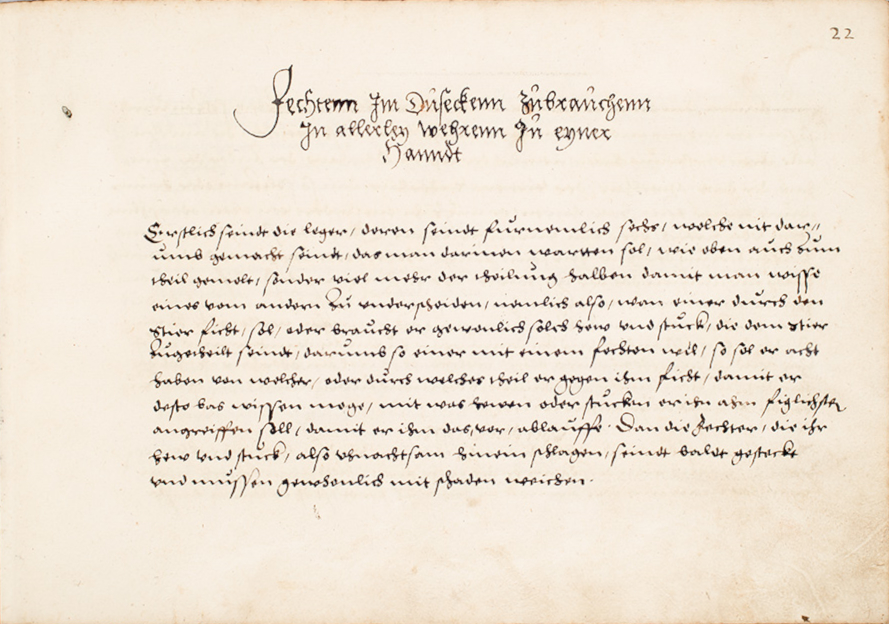 22
Fechtenn Im Dusecken zubrauchenn
In allerley wehrenn Zu eyner
Hanndt
Erstlich seindt die leger, deren seindt furnemlich sechs, welche nit dar„
umb gemacht seindt, das man darinnen wartten sol, wie oben auch zum
theil gemelt, sonder viel mehr der theilung halben damit man wisse
eines vom andern zu vnderscheiden, nemlich also, wan einer durch den
Stier ficht, sol, oder braucht er gewonlich solch hew vnd stuck, die dem Stier
zugetheilt seindt, darumb so einer mit einem fechten wil, so sol er acht
haben von welcher, oder durch welches theil er gegen ihm ficht, damit er
desto bas wissen moge, mit was hewen oder stucken er ihn ahm figlichsten
angreiffen soll, damit er ihm das, vor, ablauffe. Dan die Fechter, die ihr
hew vnd stuck, also vnachtsam hinein schlagen, seindt baldt gesteckt
vnd mussen gewohnlich mit schaden weichen.